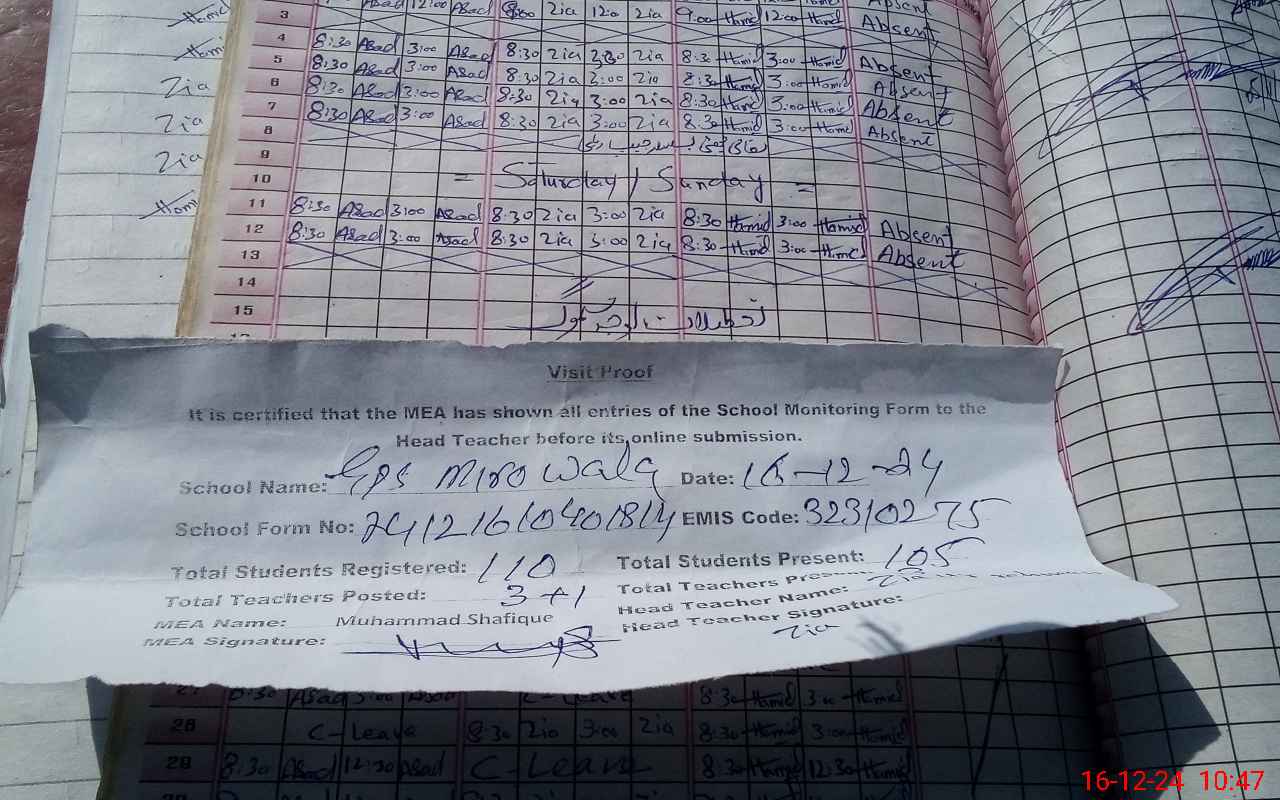 3 Asad 12:00 Asad 8:00 Zia 12:0 Zia 9:00 Hamid 12:00 Hamid Absent
4
5 8:30 Asad 3:00 Asad 8:30 Zia 3:00 Zia 8:30 Hamid 3:00 Hamid Absent
6 8:30 Asad 3:00 Asad 8:30 Zia 3:00 Zia 8:30 Hamid 3:00 Hamid Absent
7 8:30 Asad 3:00 Asad 8:30 Zia 3:00 Zia 8:30 Hamid 3:00 Hamid Absent
8 8:30 Asad 3:00 Asad 8:30 Zia 3:00 Zia 8:30 Hamid 3:00 Hamid Absent
9
10 = Saturday / Sunday =
11
12 8:30 Asad 3:00 Asad 8:30 Zia 3:00 Zia 8:30 Hamid 3:00 Hamid Absent
13 8:30 Asad 3:00 Asad 8:30 Zia 3:00 Zia 8:30 Hamid 3:00 Hamid Absent
14
15
Hamid
Hamid
Zia
Zia
Zia
Hami
Visit Proof
It is certified that the MEA has shown all entries of the School Monitoring Form to the
Head Teacher before its online submission.
School Name: GPS Miro Wala Date: 16-12-24
School Form No: 24121610401814 EMIS Code: 32310275
Total Students Registered: 110 Total Students Present: 105
Total Teachers Posted: 3+1 Total Teachers Present:
MEA Name: Muhammad Shafique Head Teacher Name: Zia
MEA Signature: Head Teacher Signature: Zia
27 8:30 Asad 3:00 Asad C-Leave 8:30 Hamid 3:00 Hamid
28 C-Leave 8:30 Zia 3:00 Zia 8:30 Hamid 3:00 Hamid
29 8:30 Asad 12:30 Asad C-Leave 8:30 Hamid 12:30 Hamid
16-12-24 10:47